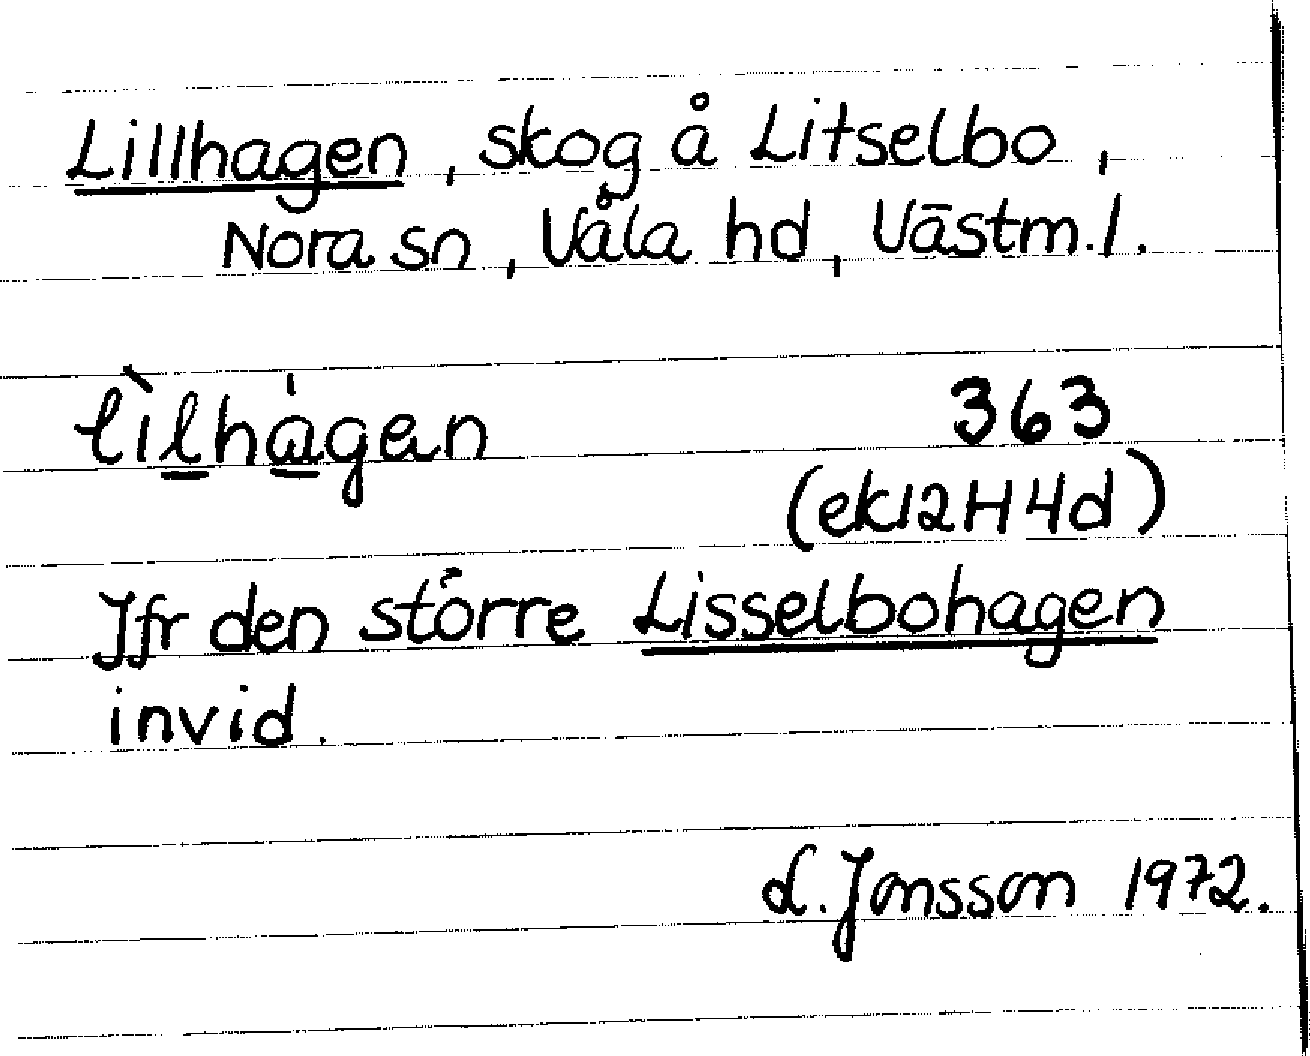 Lillhagen, skog å Litselbo,
Nora sn, Våla hd, Västm. l.
lìlhágan 363
(ek12H4d)
Jfr den större Lisselbohagen
invid.
L. Jonsson 1972.